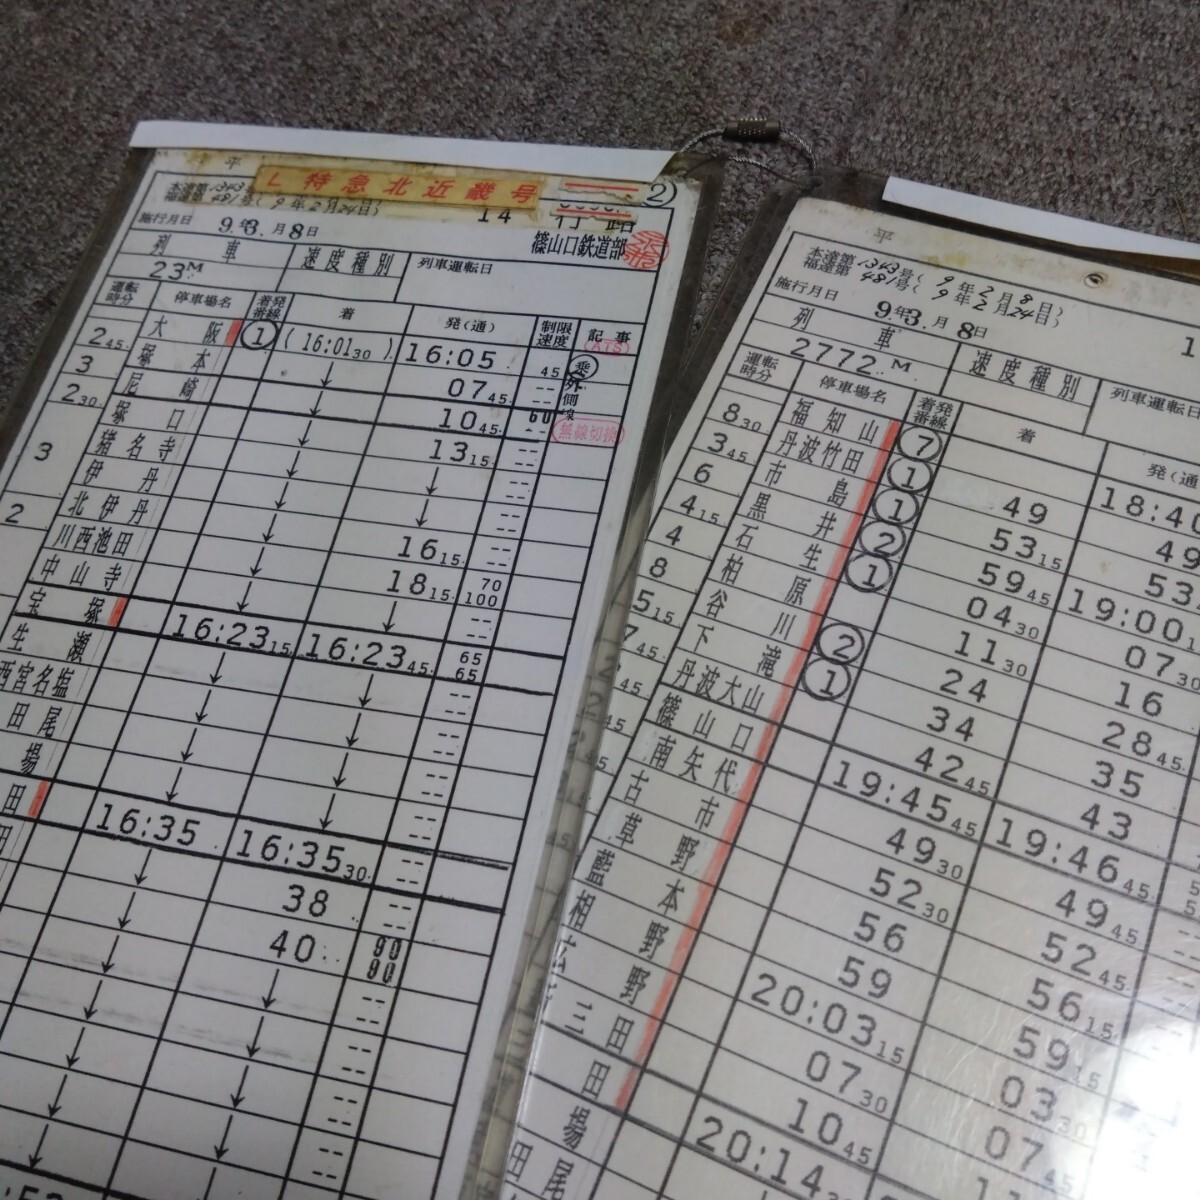 平
L特急北近畿号
②
本達第1343号
福達第481号(9年2月24日)
14 行路
施行月日 9年3月8日
篠山口鉄道部
列車 速度種別 列車運転日
23M
運転時分 停車場名 着発番線 着 発(通) 制限速度 記事
ATS
大阪 ① (16:01 30) 16:05 45 乗
2 45 塚本 ↓ 07 45 -- 外側線
3 尼崎 ↓ 10 45 60 --
無線切換
2 30 塚口 ↓ 13 15 --
猪名寺 ↓ ↓ --
3 伊丹 ↓ ↓ --
北伊丹 ↓ 16 15 --
2 川西池田 ↓ 18 15 70 100
中山寺 ↓ ↓ --
宝塚 16:23 15 16:23 45 65 65
生瀬 ↓ ↓ --
西宮名塩 ↓ ↓ --
田尾 ↓ ↓ --
場 ↓ ↓ --
田 16:35 16:35 30 --
田 ↓ 38 --
↓ 40 90 90
平
本達第1343号(9年2月8日)
福達第481号(9年2月24日)
施行月日 9年3月8日
列車 速度種別 列車運転日
2772M
運転時分 停車場名 着発番線 着 発(通
福知山 ⑦
8 30 丹波竹田 ① 49
3 45 市島 ① 53 15 49
6 黒井 ② 59 45 53
4 15 石生 ① 04 30 19:00
4 柏原 11 30 07 30
8 谷川 ② 24 16
5 15 下滝 ① 34 28 45
7 45 丹波大山 42 45 35
篠山口 19:45 45 43
南矢代 49 30 19:46 45
古市 52 30 49 45
草野 56 52 45
藍本 59 56 15
相野 20:03 15 59 15
広野 07 30 03 30
三田 10 45 07 45
田 20:14
場
田尾